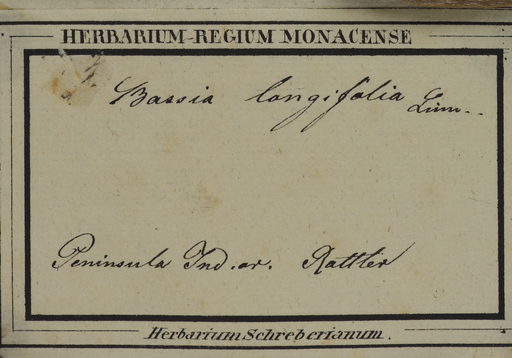 HERBARIUM REGIUM MONACENSE
Bassia longifolia Linn.
Peninsula Ind. or. Rottler
Herbarium Schreberianum.